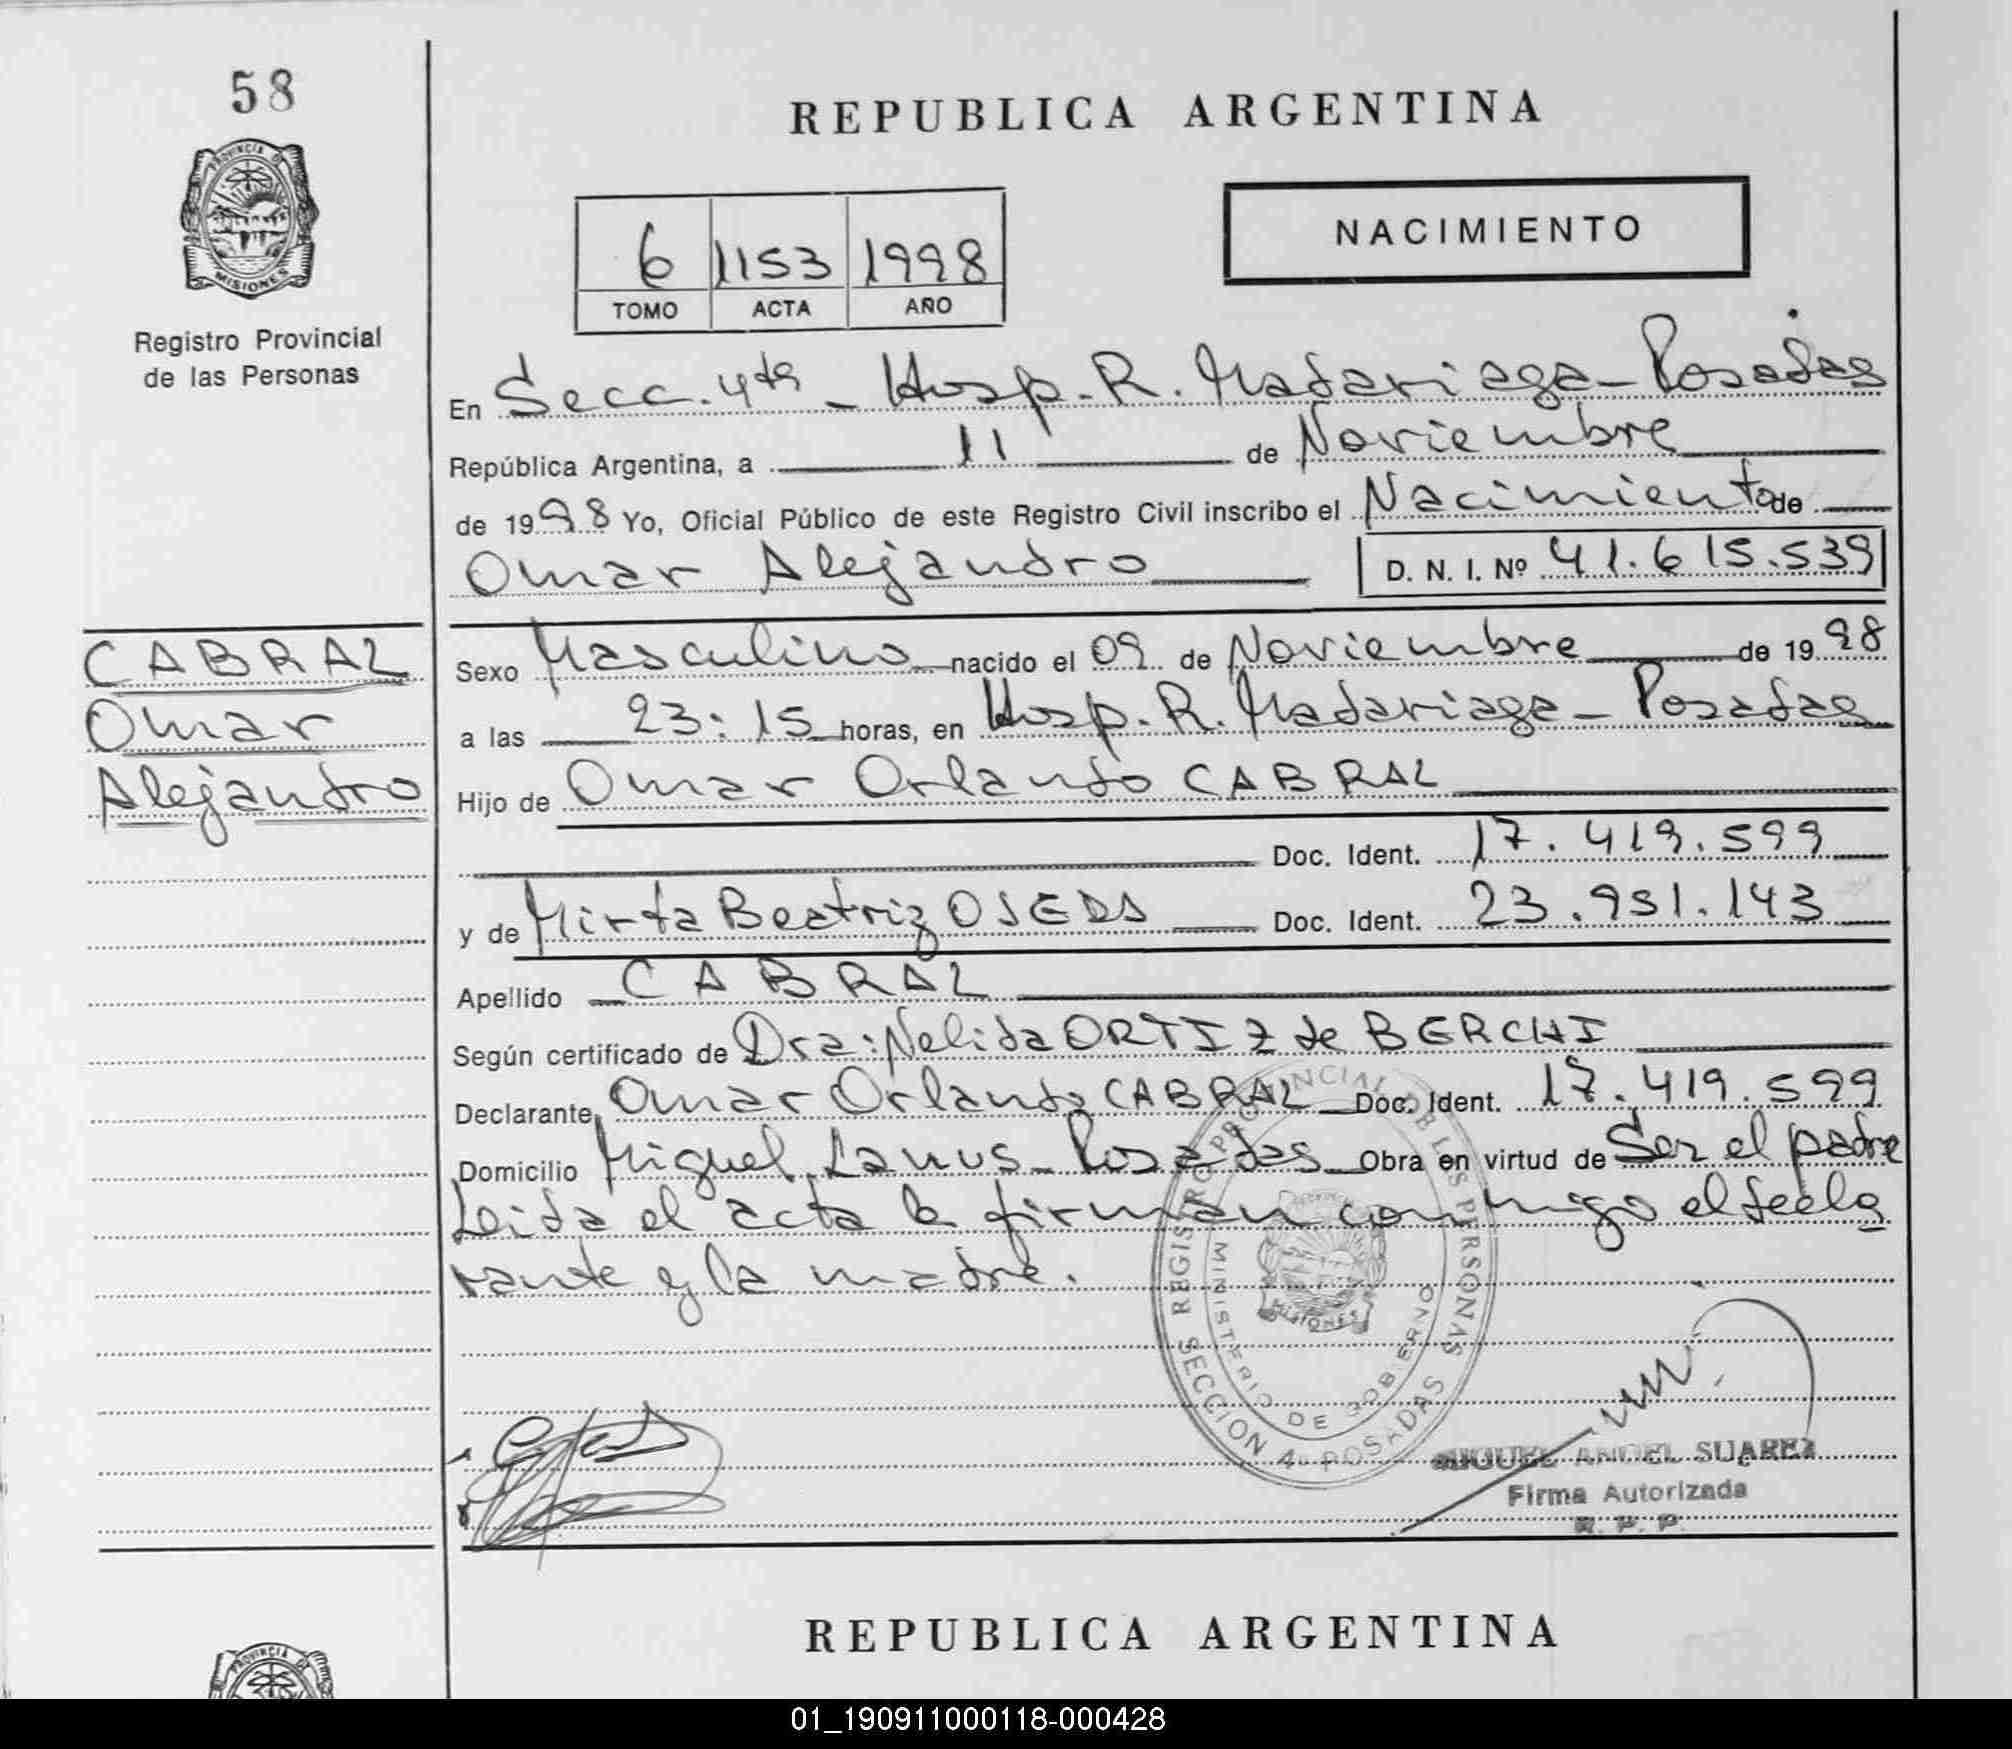 58
PROVINCIA DE
MISIONES
Registro Provincial
de las Personas
REPUBLICA ARGENTINA
NACIMIENTO
6 1153 1998
TOMO ACTA AÑO
En Secc. 4ta - Hosp. R. Madariaga - Posadas
República Argentina, a 11 de Noviembre
de 1998 Yo, Oficial Público de este Registro Civil inscribo el Nacimiento de
Omar Alejandro D. N. I. Nº 41.615.539
CABRAL
Omar
Alejandro
Sexo Masculino nacido el 09 de Noviembre de 1998
a las 23:15 horas, en Hosp. R. Madariaga - Posadas
Hijo de Omar Orlando CABRAL
Doc. Ident. 17.419.599
y de Mirta Beatriz OJEDA Doc. Ident. 23.951.143
Apellido CABRAL
Según certificado de Dra: Nelida ORTIZ de BERCHI
Declarante, Omar Orlando CABRAL Doc. Ident. 17.419.599
Domicilio Miguel Lanus - Posadas Obra en virtud de Ser el padre
Leida el acta la firman conmigo el decla
rante y la madre.
REGISTRO PROVINCIAL DE LAS PERSONAS
MINISTERIO DE GOBIERNO
MISIONES
SECCION 4ª POSADAS
MIGUEL ANGEL SUAREZ
Firma Autorizada
R. P. P.
REPUBLICA ARGENTINA
PROVINCIA DE
01_190911000118-000428